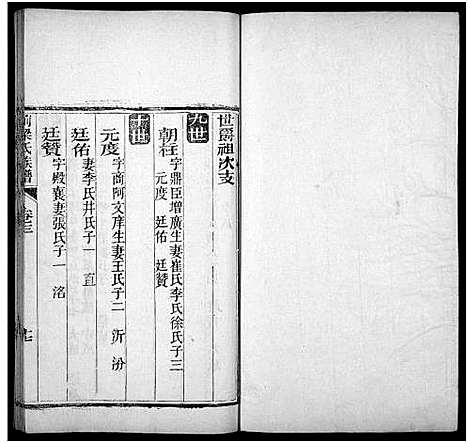 世爵祖次支
九世
朝柱 字鼎臣增廣生妻崔氏李氏徐氏子三
元度 廷佑 廷贊
十世
元度 字商阿文庠生妻王氏子二 沂 汾
廷佑 妻李氏井氏子一 直
廷贊 字殿襄妻張氏子一 洺
梁氏族譜 卷三 十七